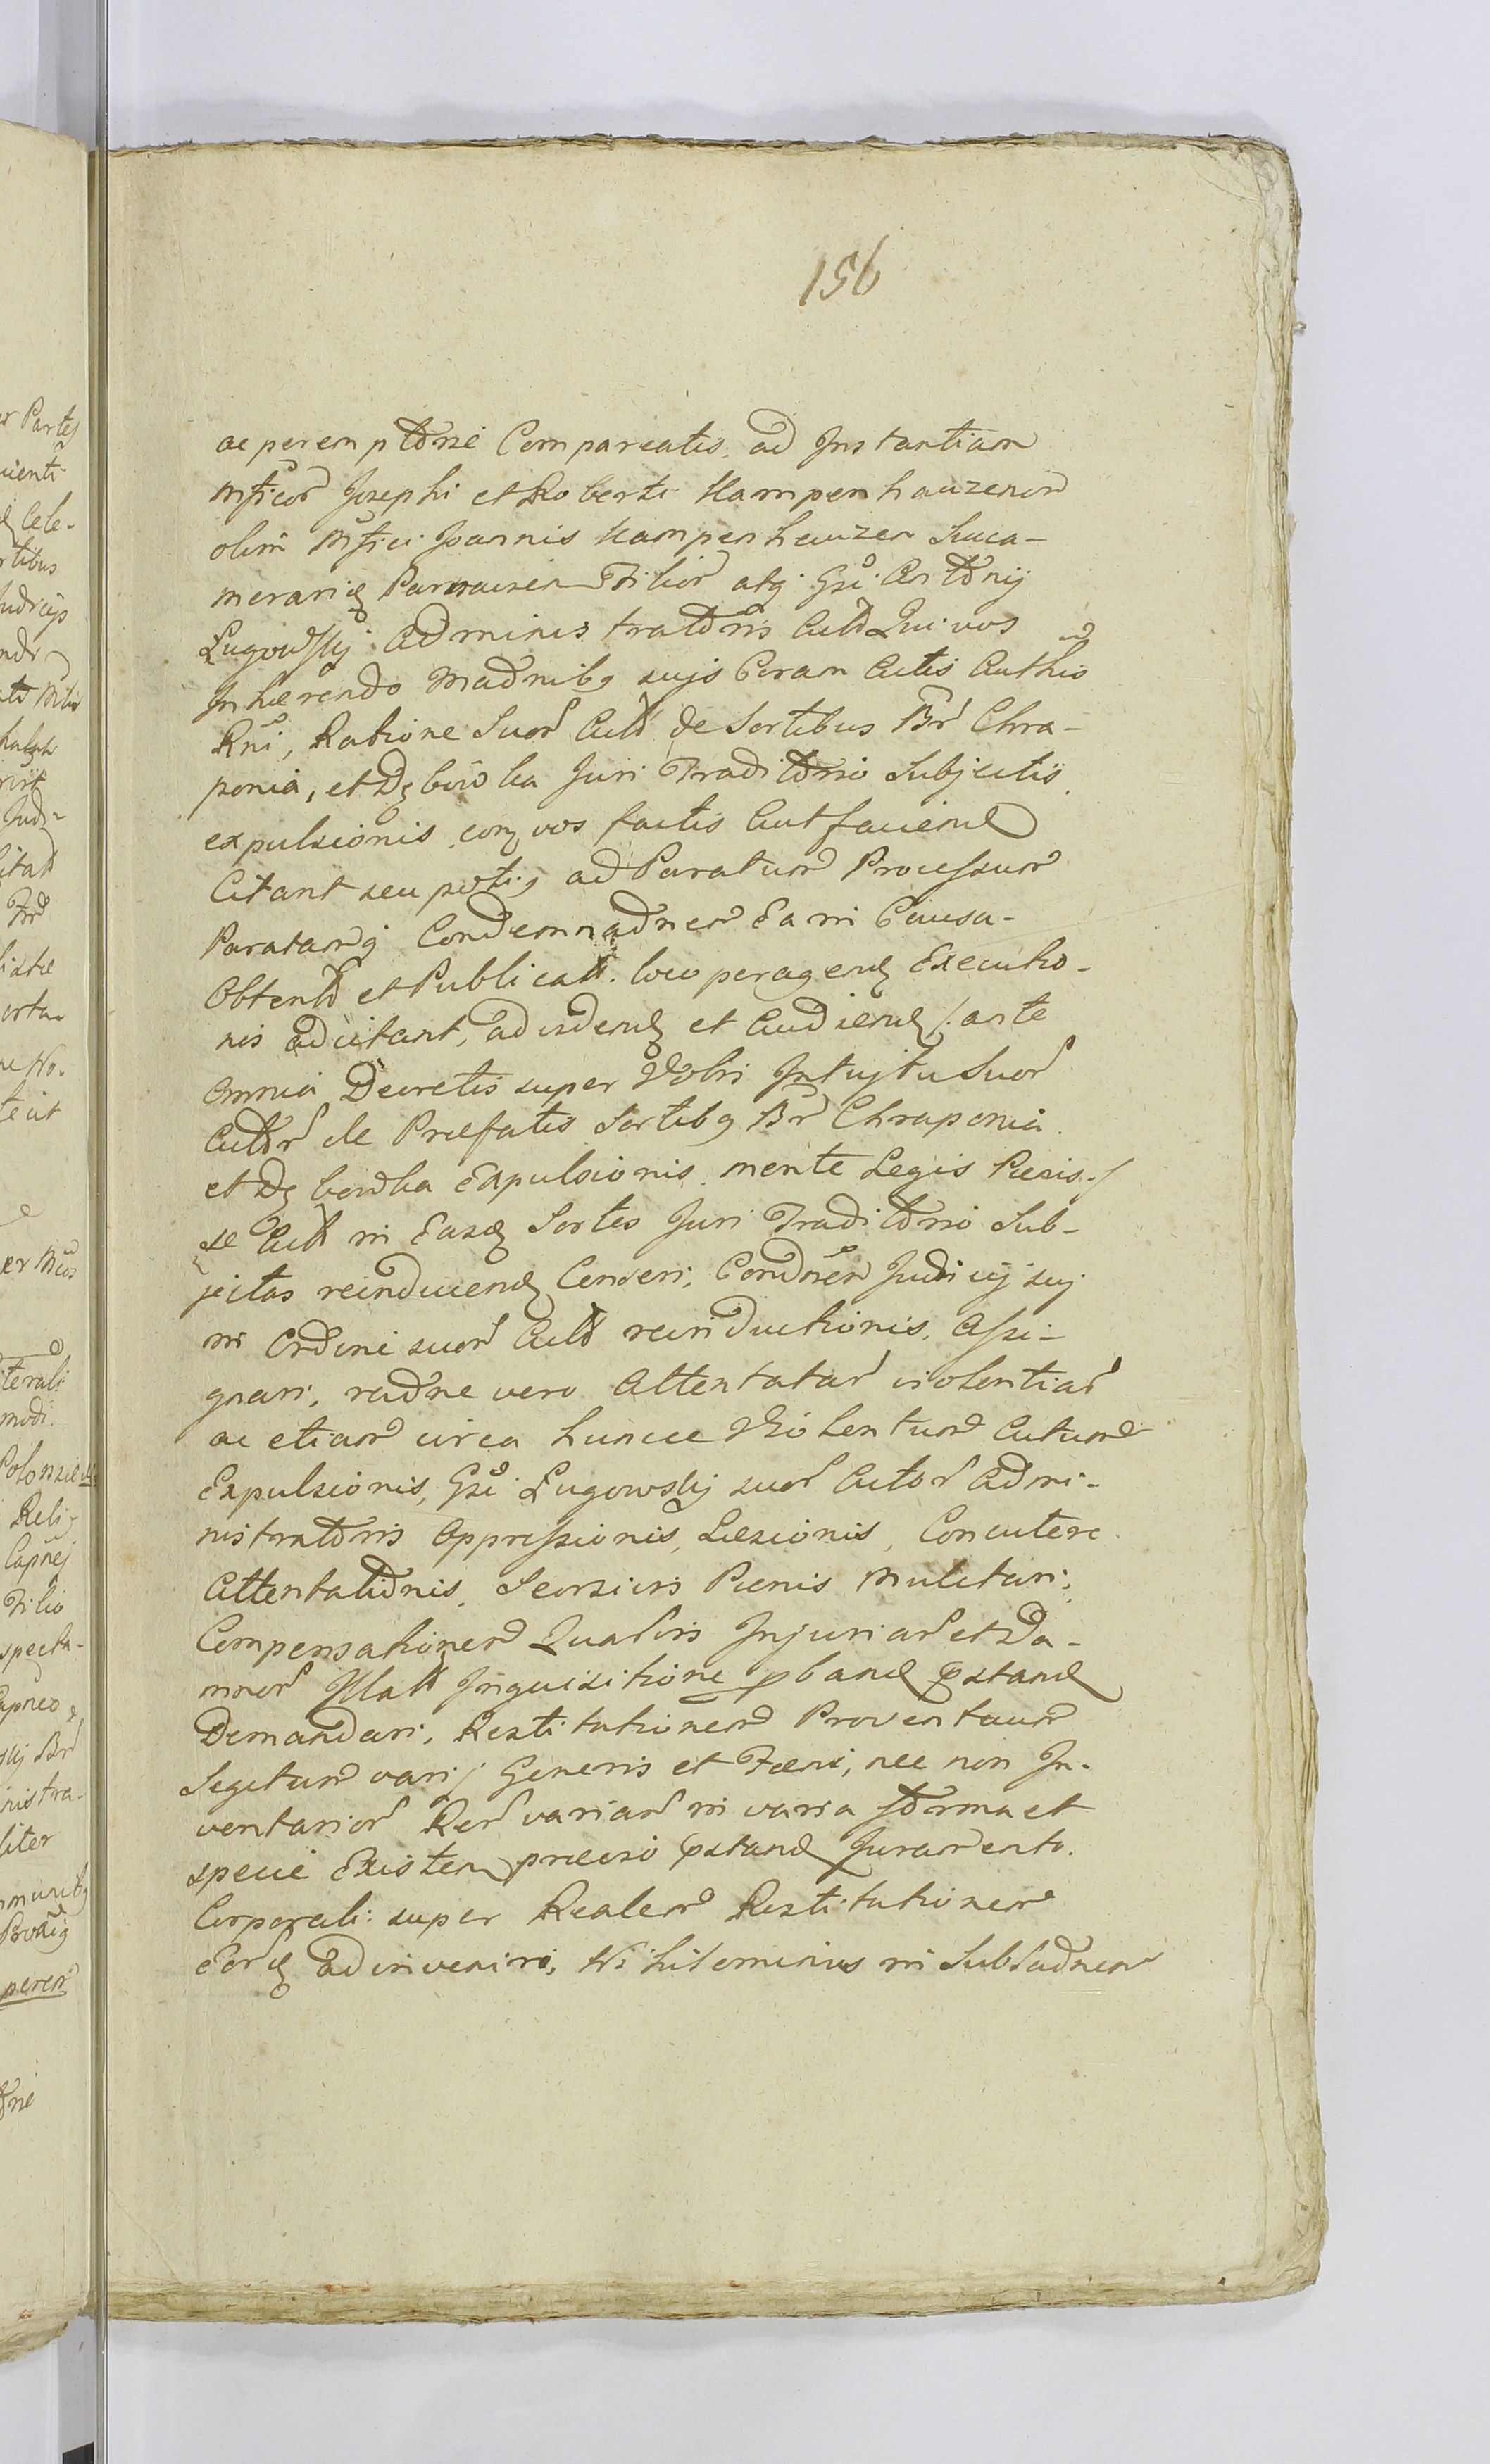 156
ac peremptorie Compareatis, ad Instantiam
Mficor Josephi et Roberti Kampenhauzenow
olim Mfici Joannis Kampenhauzen Succa-
merarij Parnavien Filior atq Gsi Antonij
Lugowskij Administratoris Act Qui vos
Inhærendo Madnibq sujs Coram Actis Authis
Rni, Ratione Suor Act de Sortibus Br Chra-
ponia, et Dębowka Juri Traditorio Subjectis
expulsionis, cont vos factis aut faciend
Citant seu potiq ad Paratum Processum
Paratamq Condemnadnem Ea in Causa
Obtent et Publicat. loco peragend Executio-
nis adcitant, ad videnđ et Audienđ /: ante
omnia Decretis super Vobis Intuitu Suor
Actor de Præfatis Sortibq Br Chraponia
et Dębowka Expulsionis mente Legis Pænis :/
se Act in Easđ Sortes Juri Traditorio Sub-
jectas reinducenđ Censeri, Condnem Judicij suj
in Ordine suor Act reinductionis, Assi-
gnari, radne vero Attentatar violentiar
ac etiam circa hunce Violentum Actum
Expulsionis, Gsi Lugowskij suor Actor Admi-
nistratoris Oppressionis, Læsionis, Concutere
Attentatidnis, Seorsivis Pænis Mulctari,
Compensationem Qualivis Injuriar et Da-
mnor Illat Inquisitione pband pstand
Demandari, Restitutionem Proventuum
Segetum varij Generis et Fæni, nec non In-
ventarior Rer variar in varia forma et
specie Existen prævio pstand Juramento
Corporali super Realem Restitutionem
eorđ adinveniri, Nihilominus in Subsadnem